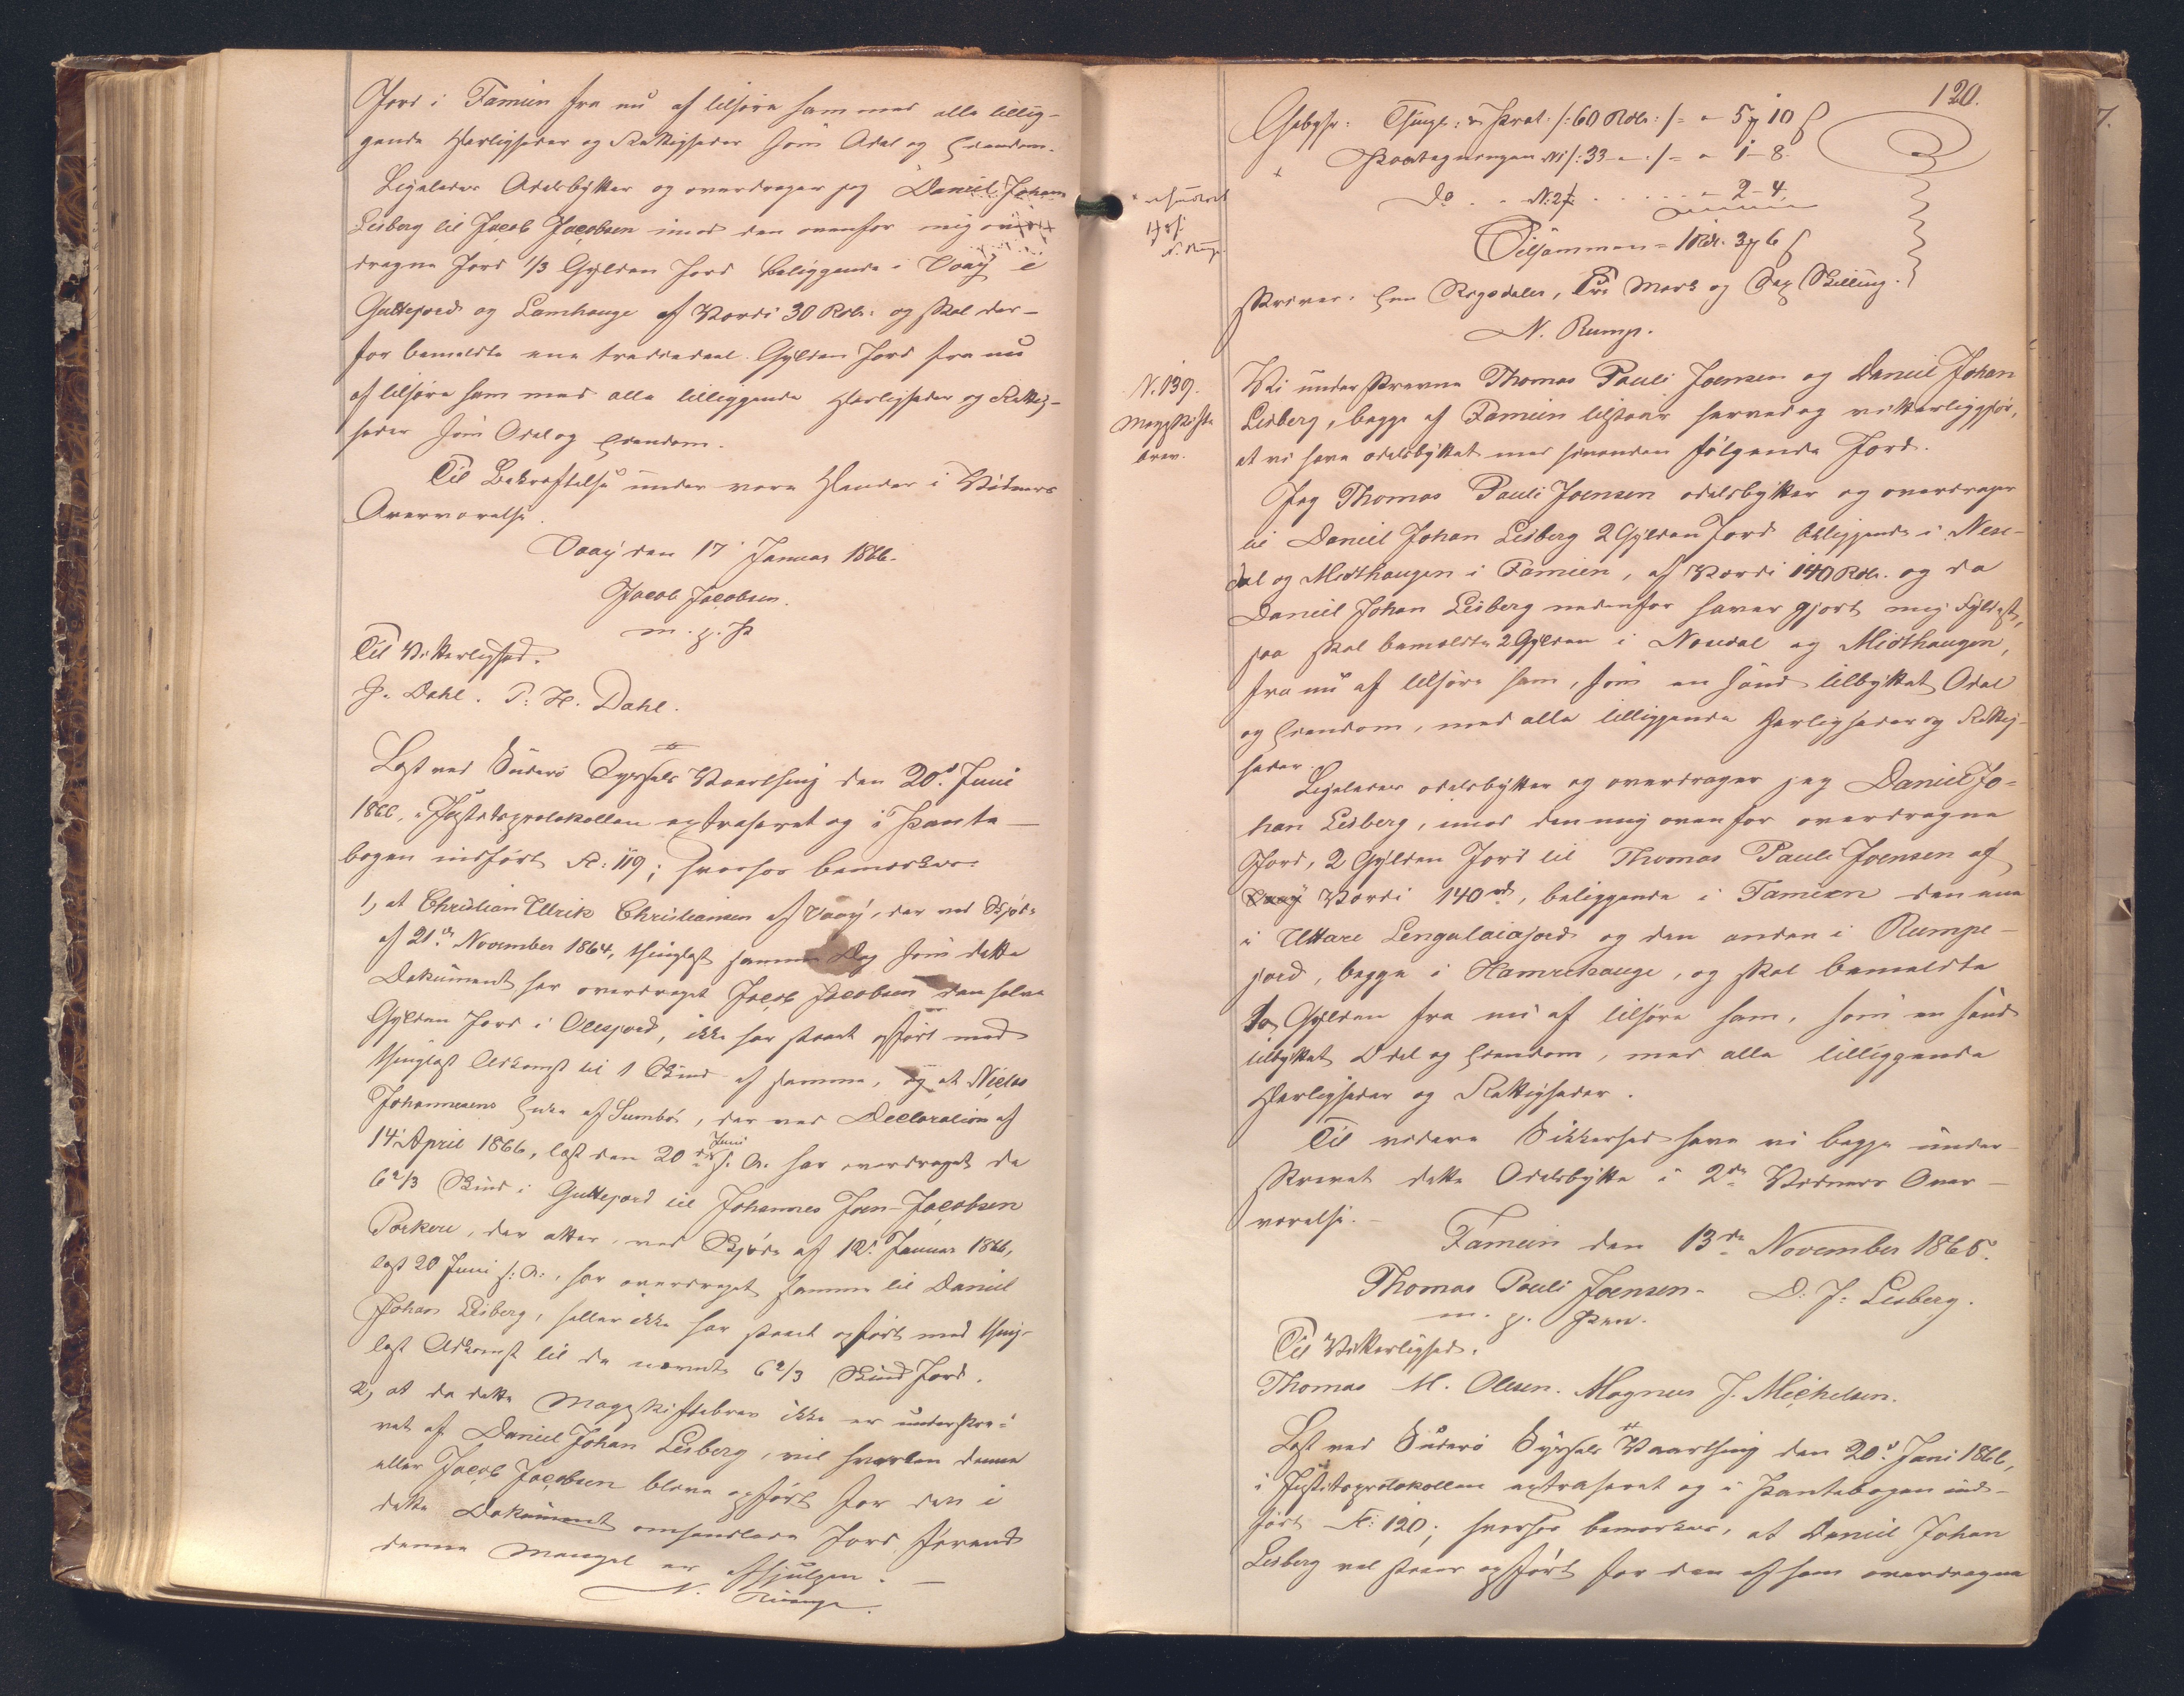 Jord i Famien fra nu af tilhøre ham med alle tillig-
gende Herligheder og Rettigheder som Odel og Eiendom.
Ligeledes Odelsbytter og overdrager jeg Daniel Johan
Lisberg til Jacob Jacobsen imod den ovenfor mig over
dragne Jord 1/3 Gylden Jord beliggende i Vaag i
Guttejord og Lamhauge af Værdi 30 Rdlr. og skal der-
for bemeldte ene trediedeel Gylden Jord fra nu
af tilhøre ham med alle tilliggende Herligheder og Rettig-
heder som Odel og Eiendom.
Til Bekræftelse under vore Hænder i Vidners
Overværelse.
Vaag den 17 Januar 1866.
Jacob Jacobsen.
m. p. P
Til Vitterlighed.
J. Dahl. P. H. Dahl.
Læst ved Suderø Syssels Vaarthing den 20d. Juni
1866, i Justitsprotokollen extraheret og i Pante-
bogen indført F: 119; hvorhos bemærkes:
1, at Christian Ulrik Christiansen af Vaag, der ved Skjøde
af 21de November 1864, thinglæst samme Dag som dette
Dokument har overdraget Jacob Jacobsen den halve
Gylden Jord i Olesjord, ikke har staaet opført med
thinglæst Adkomst til 1 Skind af samme, og at Niclas
Johannesens Enke af Sumbø, der ved Declaration af
14 April 1866, læst den 20de Juni s. A. har overdraget de
6 2/3 Skind i Guttejord til Johannes Joen-Jacobsen
Porkere, der atter, ved Skjøde af 12. Januar 1866,
læst 20 Juni s: A:, har overdraget samme til Daniel
Johan Lisberg, heller ikke har staaet opført med thing-
læst Adkomst til de nævnte 6 2/3 Skind Jord.
2, at da dette Mageskiftebrev ikke er underskre-
vet af Daniel Johan Lisberg, vil hverken denne
eller Jacob Jacobsen blive opført for den i
dette Dokument omhandlede Jord førend
denne Mangel er afhjulpen.
N. Rump.
120.
Gebyhr: Thingl: & Prot: /:60 Rdlr:/ = - 5 # 10 ß
Paategningen N1 /:33 - :/ = - 1 - 8
Do . . N: 2 . . . . . - 2 - 4
Tilsammen = 1 Rdr. 3 # 6 ß
skriver: Een Rigsdaler, Tre Mark og Sex Skilling.
N. Rump.
N. Rump
N. 139.
Mageskifte
brev.
Vi underskrevne Thomas Pauli Joensen og Daniel Johan
Lisberg, begge af Famien tilstaar herved og vitterliggjør,
at vi have odelsbyttet med hinanden følgende Jord.
Jeg Thomas Pauli Joensen odelsbytter og overdrager
til Daniel Johan Lisberg 2 Gylden Jord beliggende i Nese-
dal og Midthaugen i Famien, af Værdi 140 Rdlr. og da
Daniel Johan Lisberg nedenfor haver gjort mig Fyldest,
saa skal bemeldte 2 Gylden i Nesedal og Midthaugen,
fra nu af tilhøre ham, som en sand tilbyttet Odel
og Eiendom, med alle tilliggende Herligheder og Rettig-
heder.
Ligeledes odelsbytter og overdrager jeg Daniel Jo-
han Lisberg, imod den mig ovenfor overdragne
Jord, 2 Gylden Jord til Thomas Pauli Joensen af
Vaag Værdi 140 rd, beliggende i Famien den ene
i Uttare Lengulaiajord og den anden i Rumpe-
jord, begge i Hamrehauge, og skal bemeldte
To Gylden fra nu af tilhøre ham, som en sand
tilbyttet Odel og Eiendom, med alle tilliggende
Herligheder og Rettigheder.
Til videre Sikkerhed have vi begge under-
skrevet dette Odelsbytte i 2de Vidners Over-
værelse.-
Famien den 13de November 1865.
Thomas Pauli Joensen. D. J. Lisberg.
m. p. Pen.
Til Vitterlighed.
Thomas M. Olesen. Magnus J. Michelsen.
Læst ved Suderø Syssels Vaarthing den 20d. Juni 1866,
i Justitsprotokollen extraheret og i Pantebogen ind-
ført F: 120; hvorhos bemærkes, at Daniel Johan
Lisberg vel staar opført for den af ham overdragne